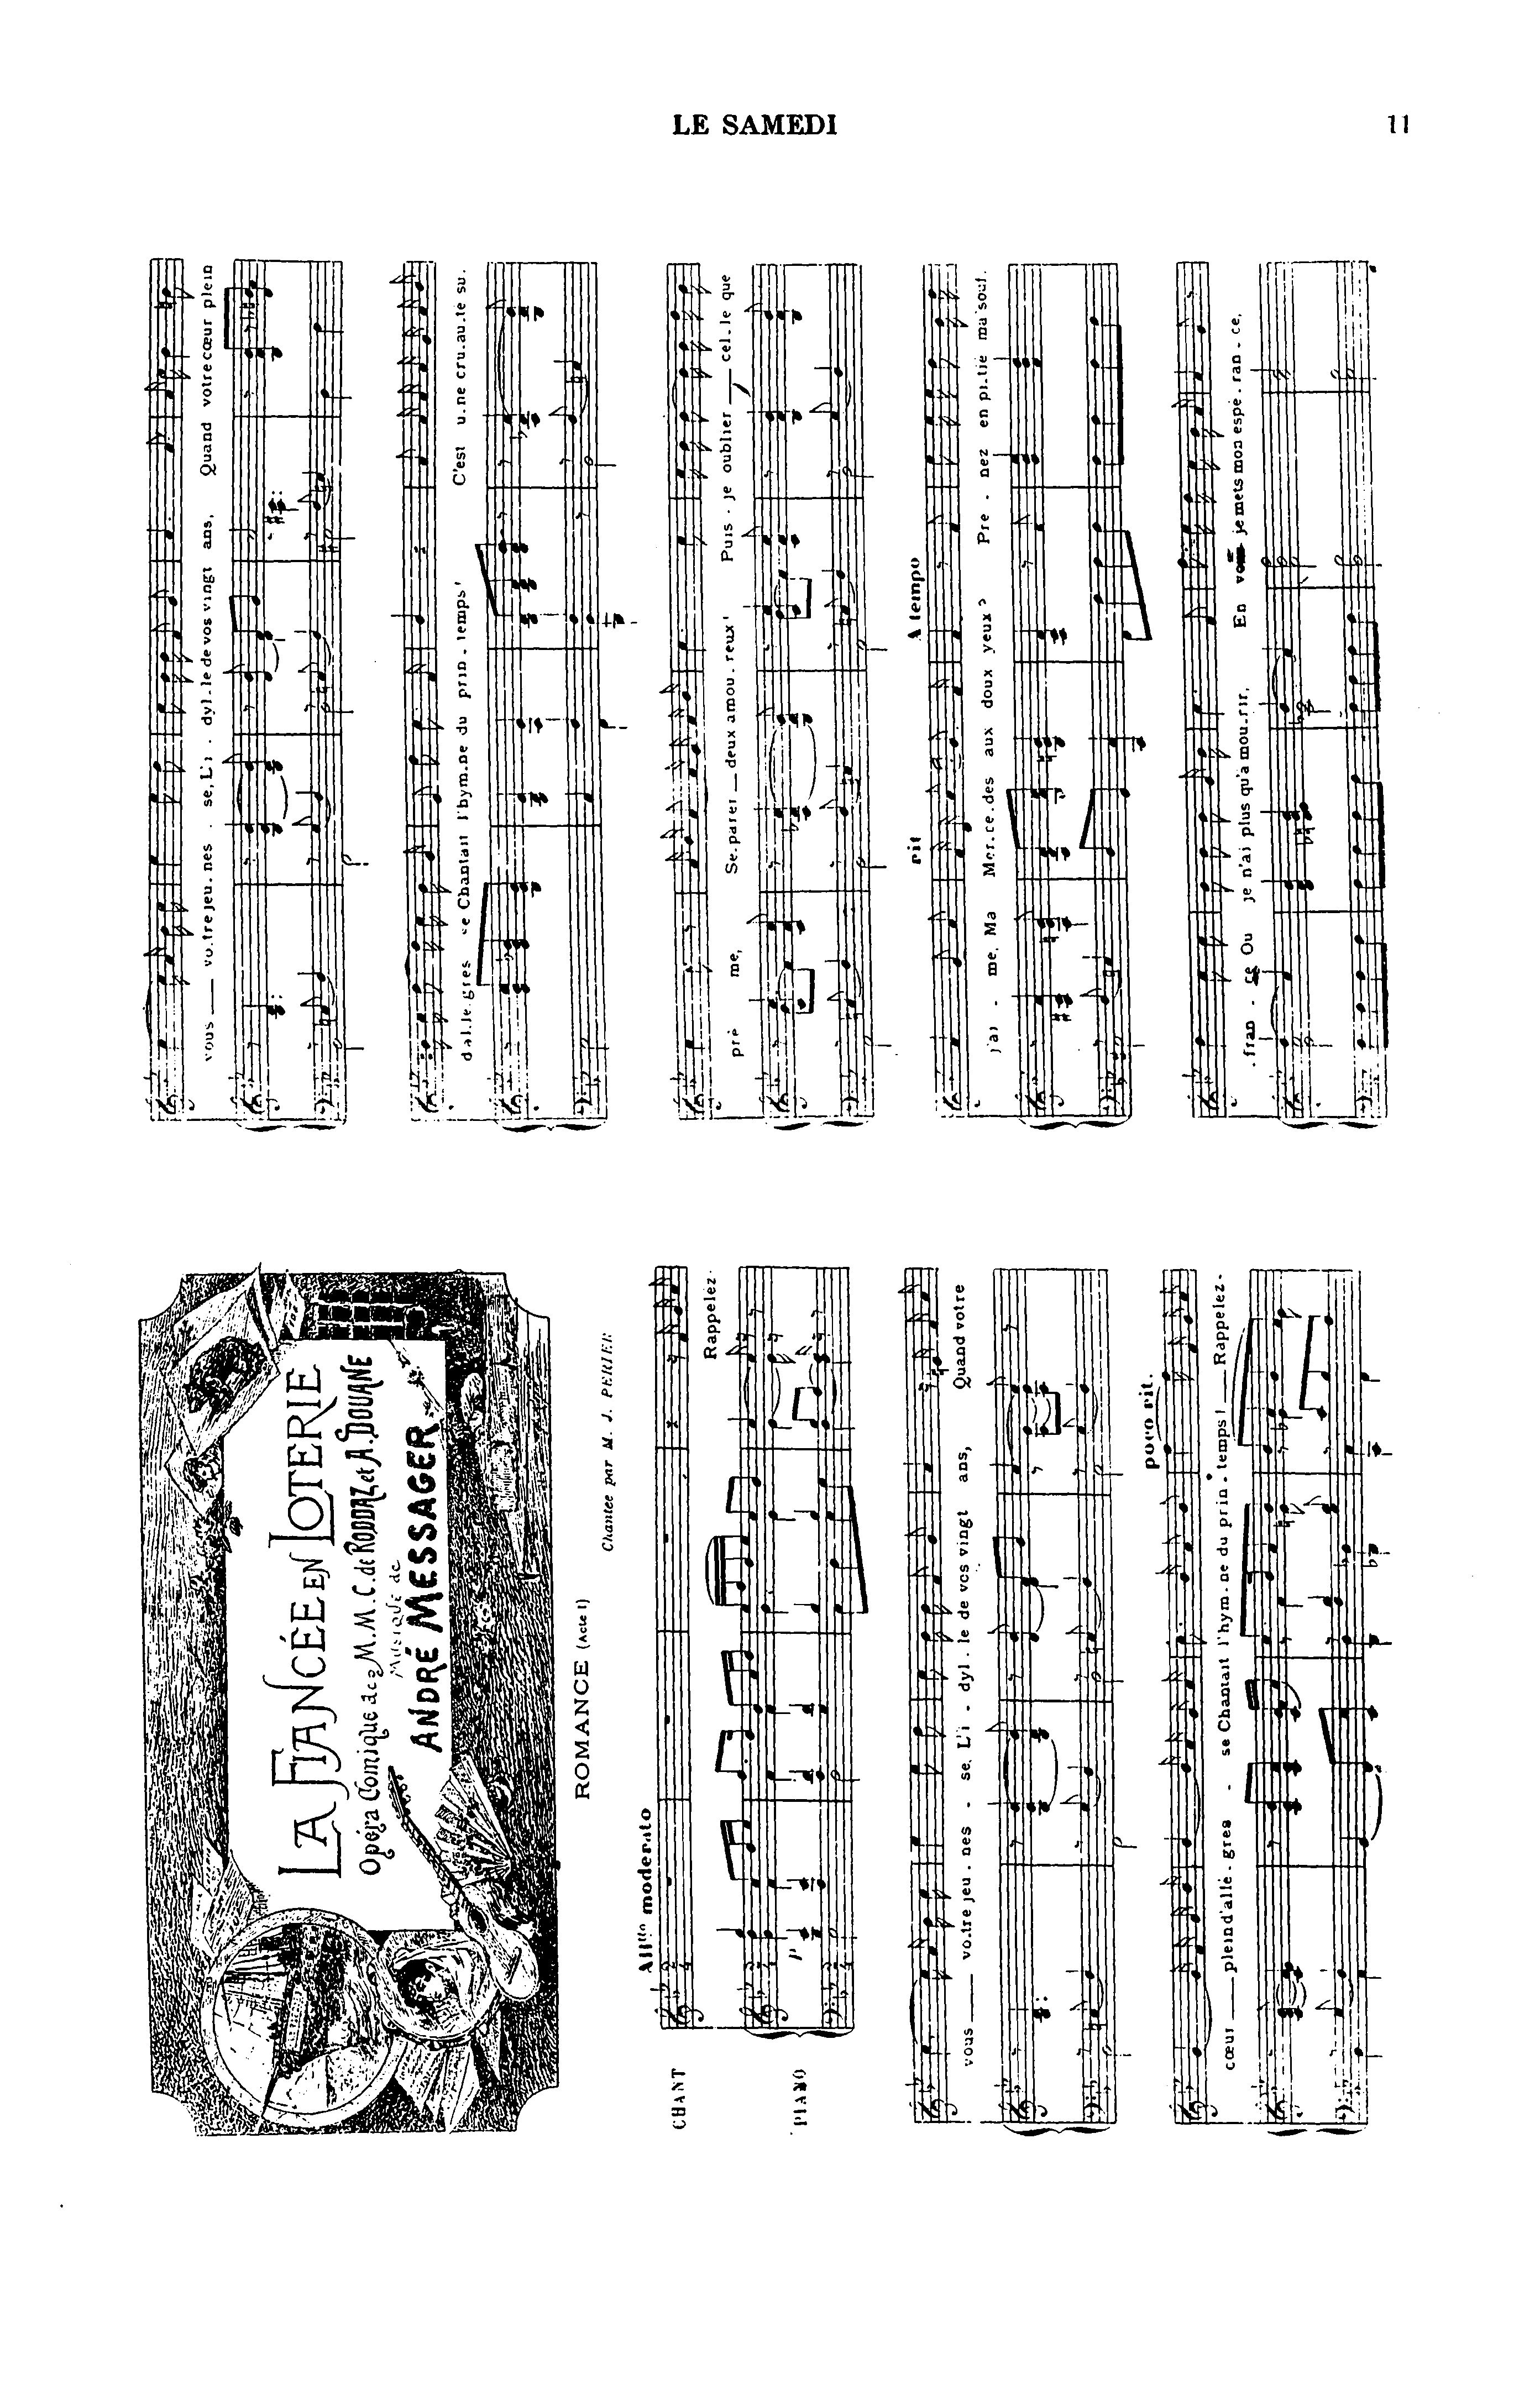 LE SAMEDI
11
LA FIANCÉE EN LOTERIE
Opéra Comique de M.M. C. de RODDAZ et A. DOUANE
Musique de
ANDRÉ MESSAGER
ROMANCE (Acte I)
Chantée par M. J. PERIER
Alltto moderato
CHANT
Rappelez-
PIANO
vous — vo.tre jeu . nes - se, L'i - dyl . le de vos vingt ans, Quand votre
poco rit.
cœur — plein d'allè - gres - se Chantait l'hym - ne du prin - temps! — Rappelez-
vous — vo.tre jeu. nes . se, L'i . dyl - le de vos vingt ans, Quand votre cœur plein
d'al.lè.gres se Chantait l'hym.ne du prin . temps! C'est u.ne cru.au.te su.
prè me, Se.parer — deux amou . reux! Puis - je oublier — cel.le que
rit A tempo
j'ai - me, Ma Mer.ce.des aux doux yeux? Pre . nez en pi.tie ma souf.
. fran - ce Ou je n'ai plus qu'a mou.rir, En vous je mets mon espe . ran - ce,